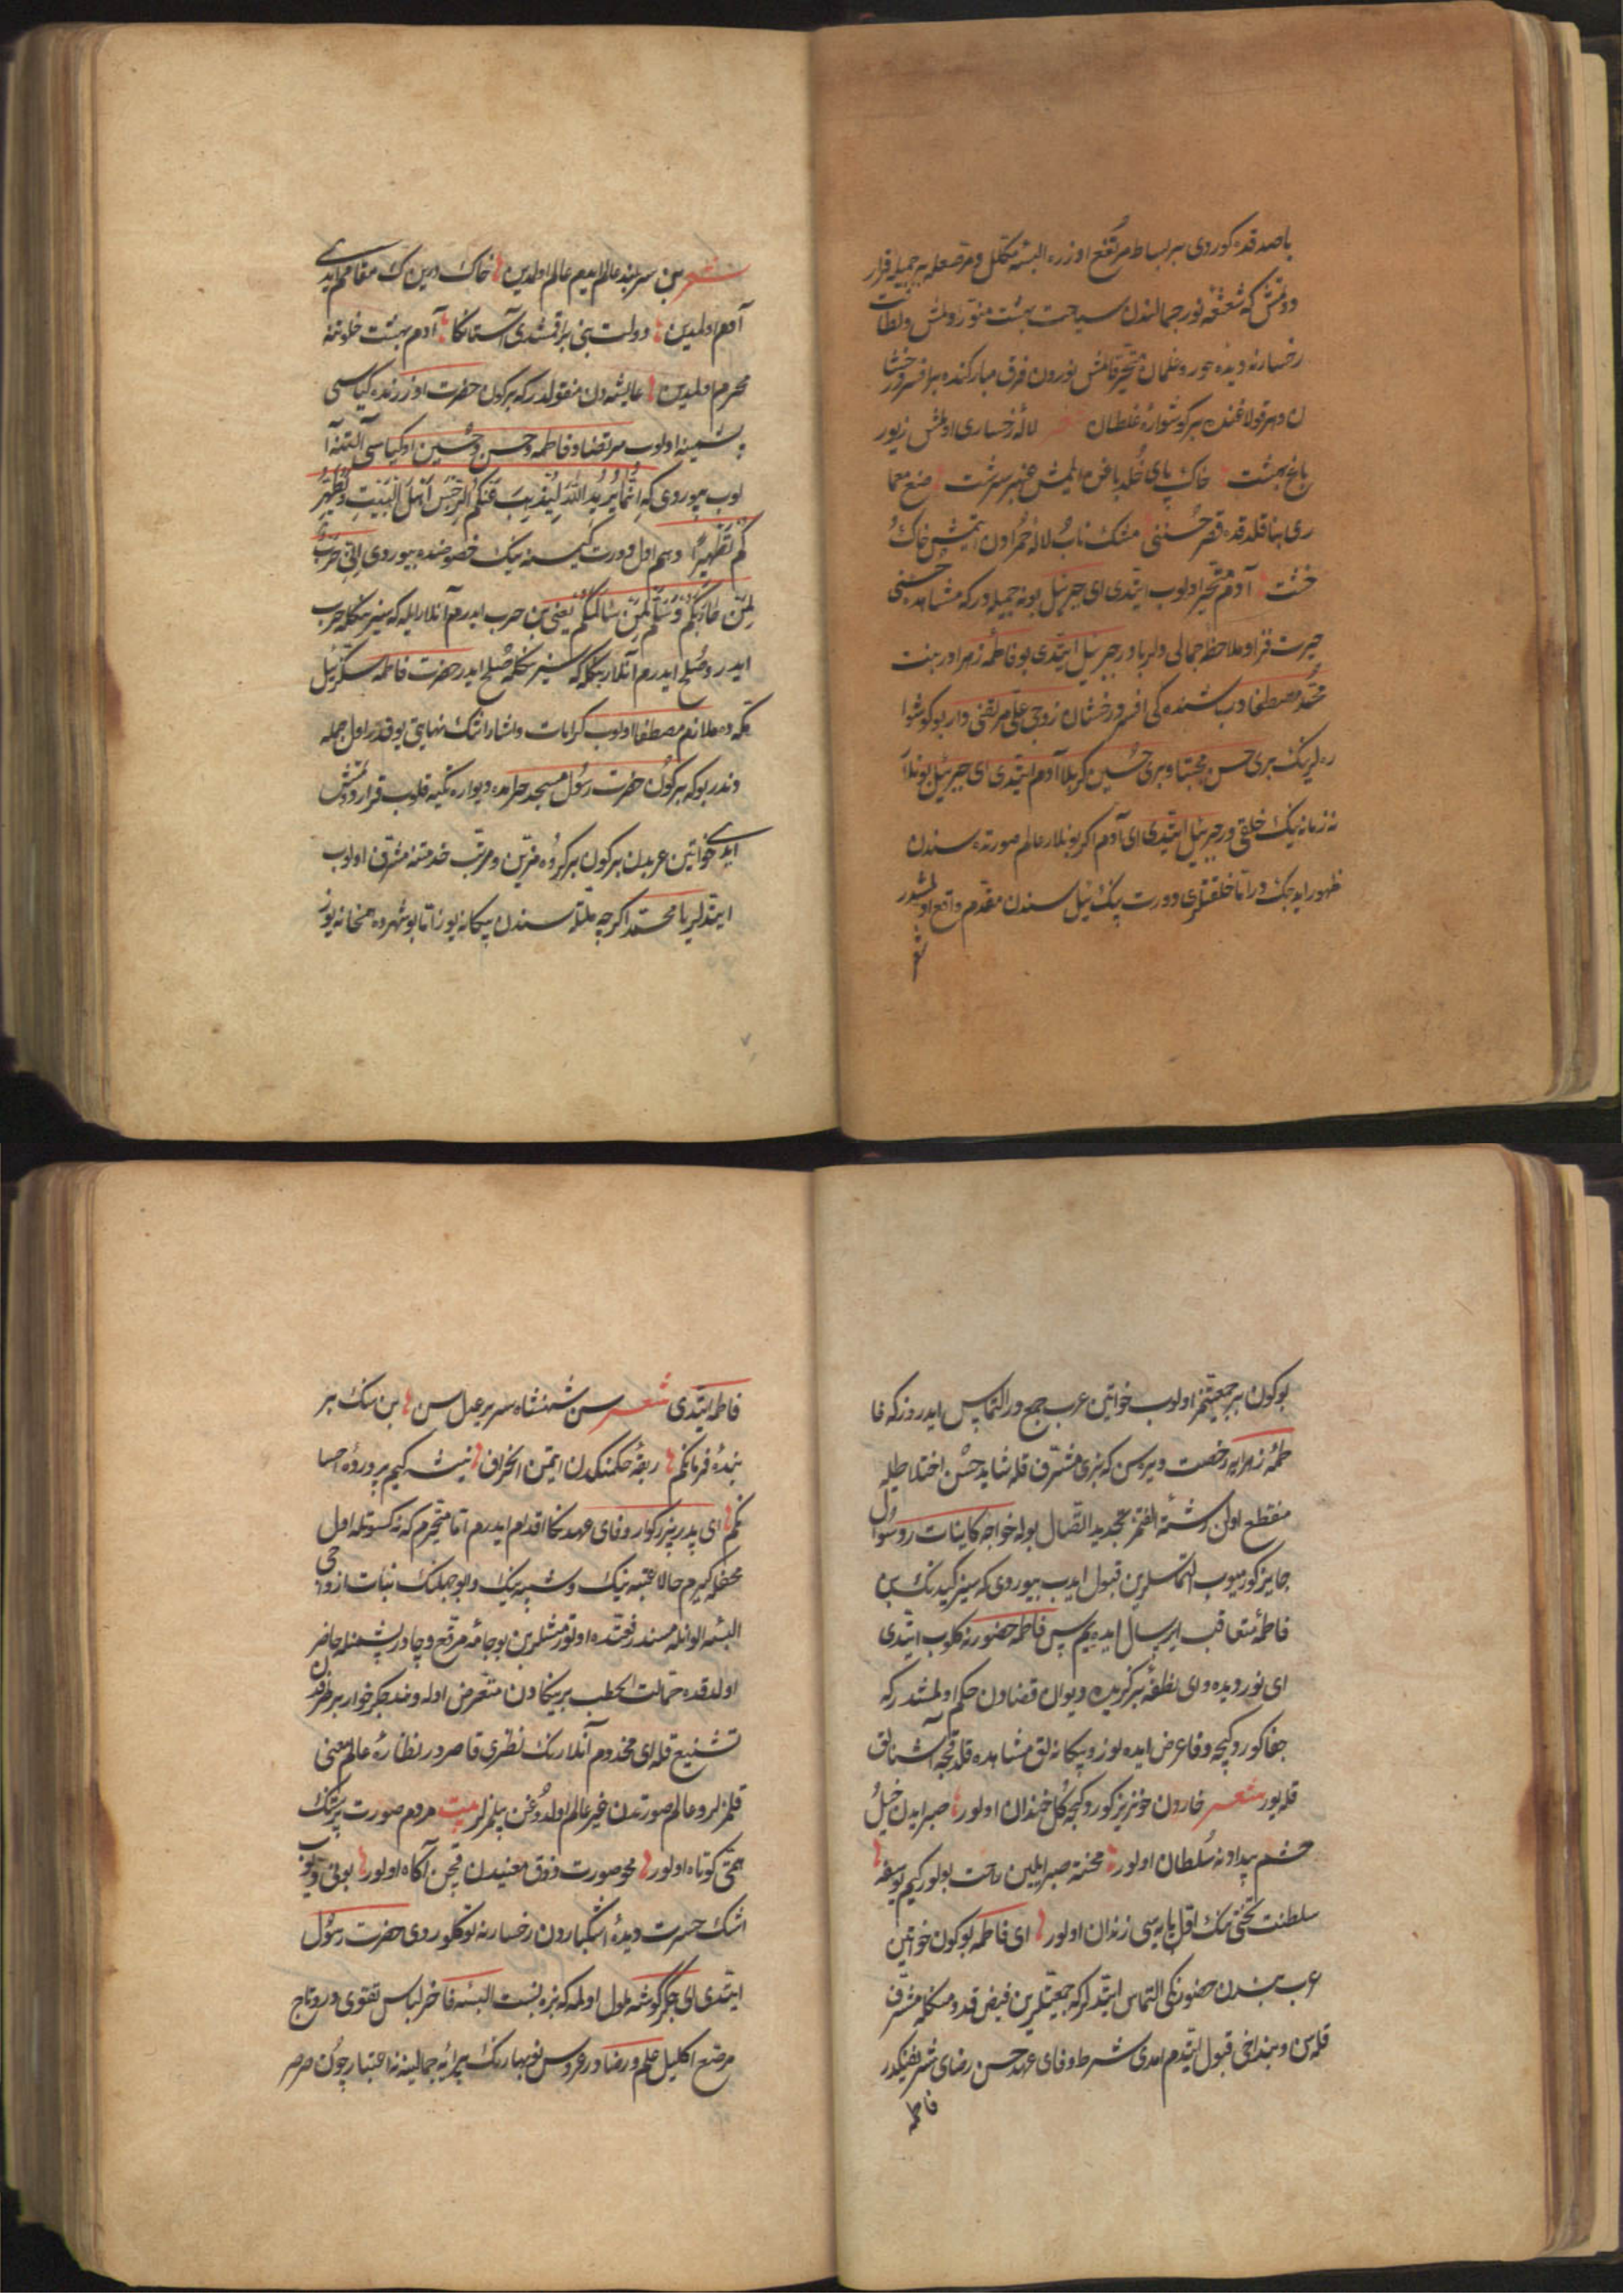 باصدقده كوردی بر بساط مرتفع اوزره البسهٔ مكلل و مرصعله بر جمیله قرار
دوتمش كه شعشعهٔ نور جمالندن ساحت بهشت منور اولمش و لطافت
رخسارنه دیدهٔ حور و غلمان متحیر قالمش نوردن فرق مباركنده بر افسر درخشا
ن و هر قولاغنده بر كوشوارهٔ غلطان شعر لالهٔ رخساری اولمش زیور
باغ بهشت خاك پای خلد باغن ایلمش عنبر سرشت صنع معما
ری بنا قلدقده قصر حسننی مشك ناب و لالهٔ حمرادن ایتمش خاك و
خشت آدم متحیر اولوب ایتدی ای جبرئیل بو نه جمیله در كه مشاهدهٔ حسنی
حیرت فزا و ملاحظهٔ جمالی دلربادر جبرئیل ایتدی بو فاطمهٔ زهرادر بنت
محمد مصطفا و باشنده كی افسر درخشان زوجی علی مرتضی در بو كوشوا
ره لرینك بری حسن مجتبا و بری حسین كربلا آدم ایتدی ای جبرئیل بونلار
نه زمانینك خلقی در جبرئیل ایتدی ای آدم اكر بونلار عالم صورتده سندن
ظهور ایدجكدر اما خلقتلری دورت بیك ییل سندن مقدم واقع اولمشدر
شعر
شعر بن سربلند عالم ایدیم عالم اولمدین خاك درین ك مقامم ایدی
آدم اولمدین دولت بنی براقمشدی آستانكا آدم بهشت خلوتنه
محرم اولمدین عایشه دن منقولدر كه بر كون حضرت اوزرنده كیاسی
پشمینه اولوب مرتضا و فاطمه و حسن و حسین اول كیاسی آلتنه آ
لوب بیوردی كه اِنَّمَا یُرِیدُ اللهُ لِیُذْهِبَ عَنْكُمُ الرِّجْسَ اَهْلَ الْبَیْتِ وَ یُطَهِّرَ
كُمْ تَطْهِیرًا و هم اول دورت كیمسه نیك خصوصنده بیوردی اِنِّی حَرْبٌ
لِمَنْ حَارَبَكُمْ وَ سِلْمٌ لِمَنْ سَالَمَكُمْ یعنی بن حرب ایدرم آنلار ایله كه سیزنكله حرب
ایدر و صلح ایدرم آنلار بكله كه سیزنكله صلح ایدر حضرت فاطمه سكز ییل
مكه ده ملازم مصطفا اولوب كرامات و اشاراتنك نهایتی یوقدر اول جمله
دندر بو كه بر كون حضرت رسول مسجد حرامده دیواره تكیه قلوب قرار دوتمش
ایدی خواتین عربدن بر كون بر كروه مزین و مرتب خدمتنه مشرف اولوب
ایتدیلر یا محمد اكرچه ملتده سندن بیكانه یوز اما بو شهرده همخانه یوز
بو كون بر جمعیتمز اولوب خواتین عرب جمع در التماس ایدروز كه فا
طمهٔ زهرایه رخصت ویره سن كه بزی مشرف قله شاید حسن اختلاطیله
منقطع اولن رشتهٔ الفتمز تجدید اتصال بوله خواجهٔ كاینات رد سؤال
جایز كورمیوب التماسلرین قبول ایدب بیوردی كه سیز كیدنك بن
فاطمه متعاقب ایرسال ایده ییم پس فاطمه حضورنه كلوب ایتدی
ای نور دیده و ای نطفهٔ بركزیده دیوان قضادن حكم اولمشدر كه
جفا كوردكجه وفا عرض ایده لوز و بیكانه لق مشاهده قلدقجه آشنالق
قله یوز شعر خاردن خونریز كوردكجه كل خندان اولور صبر ایدن خیل
حشم پیدا ونه سلطان اولور محنته صبر ایلین راحت بولور كیم یوسفه
سلطنت تختی ننك اول پایه سی زندان اولور ای فاطمه بو كون خواتین
عرب بندن حضورنكی التماس ایتدلر كه جمعیتلرین فیض قدومنكله مشرف
قله سن و بن داخی قبول ایتدم امدی شرط وفای عهد حسن رضای شریفنكدر
فاطمه
فاطمه ایتدی شعر سن شهنشاه سریر عدل سن بن سنك بر
بندهٔ فرمانكم ربقهٔ حكمنكدن ایتمن انحراف نیشه كیم پروردهٔ احسا
نكم ای پدر بزركوار وفای عهدنكا اقدام ایدرم اما متحیرم كه نه كسوتله اول
محفله كیرم حالا عتبه نیك و شیبه نیك و ابو جهلنك بنات ازواجی
البسهٔ الوانله مسند رفعتده اوتورمشلر بن بو جامهٔ مرقع و چادر پشمینله حاضر
اولدقده حمالت الحطب بر یكادن متعرض اوله و هند جكرخوار بر طرفدن
تشنیع قله ای مخدوم آنلارنك نظری قاصردر نظارهٔ عالم معنی
قلمزلر و عالم صورتدن غیر عالم اولدوغن بیلمزلر بیت مردم صورت پرستنك
همتی كوتاه اولور محو صورت ذوق معنیدن قچن آكاه اولور بونی دیوب
اشك حسرت دیدهٔ اشكباردن رخسارنه توكلوردی حضرت رسول
ایتدی ای جكركوشه ملول اولمه كه بزه نسبت البسهٔ فاخر لباس تقوی در و تاج
مرصع اكلیل علم و رضادر عروس نوبهارنك پیرایهٔ جمالینه نه اعتبار چون صرصر